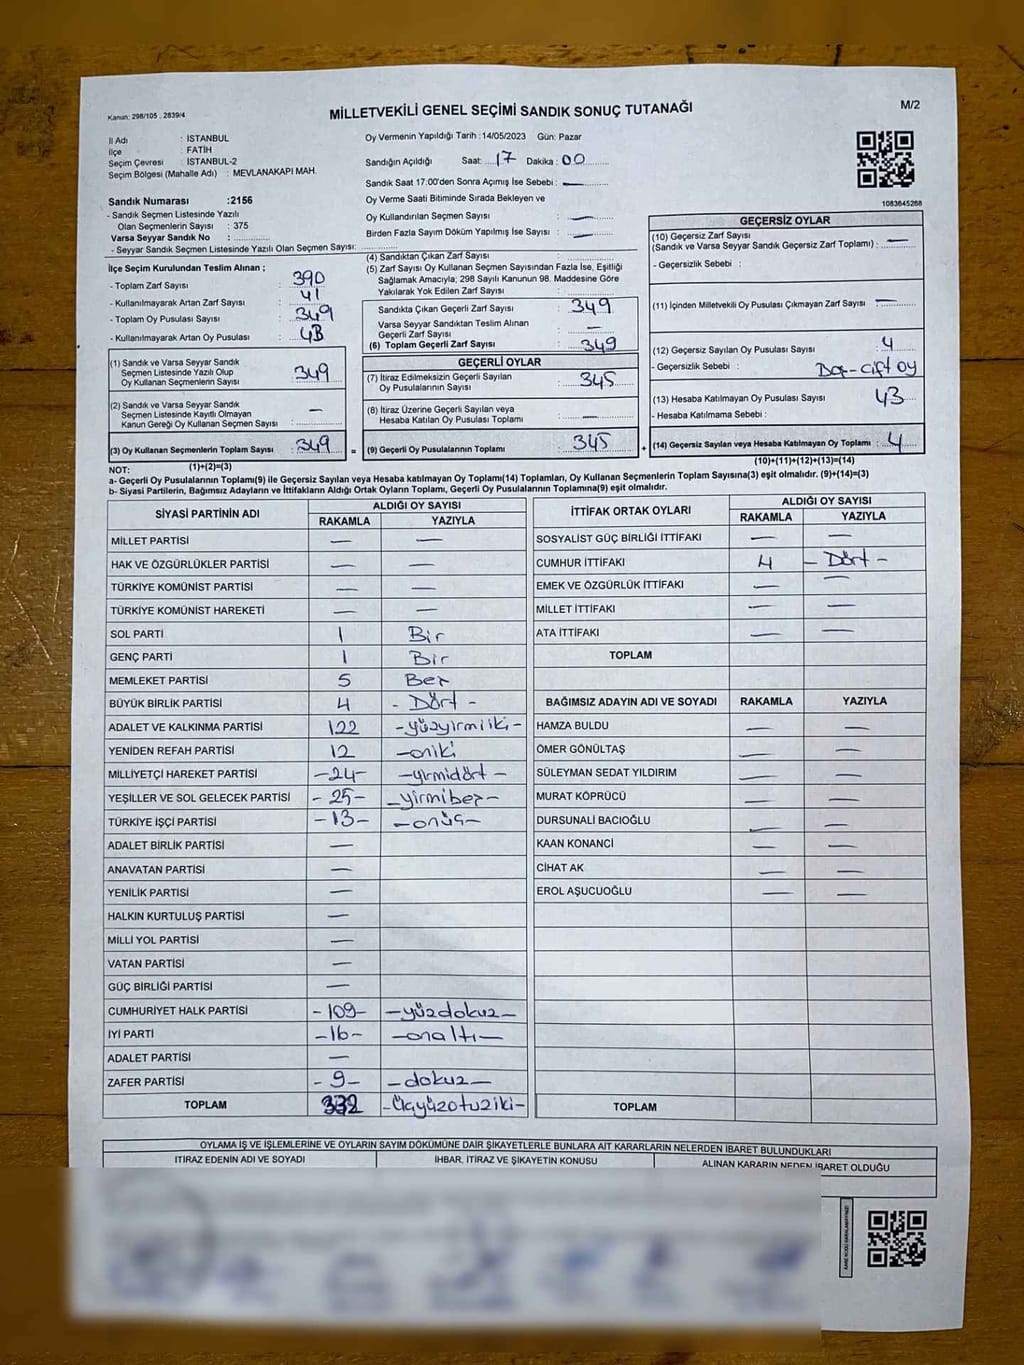 Kanun: 298/105 , 2839/4
MİLLETVEKİLİ GENEL SEÇİMİ SANDIK SONUÇ TUTANAĞI
M/2
İl Adı : İSTANBUL
İlçe : FATİH
Seçim Çevresi : İSTANBUL-2
Seçim Bölgesi (Mahalle Adı) : MEVLANAKAPI MAH.
Oy Vermenin Yapıldığı Tarih : 14/05/2023 Gün: Pazar
Sandığın Açıldığı Saat: 17 Dakika : 00
Sandık Saat 17:00'den Sonra Açımış İse Sebebi : —
Oy Verme Saati Bitiminde Sırada Bekleyen ve
Oy Kullandırılan Seçmen Sayısı : —
Birden Fazla Sayım Döküm Yapılmış İse Sayısı : —
1083645268
Sandık Numarası :2156
- Sandık Seçmen Listesinde Yazılı
Olan Seçmenlerin Sayısı : 375
Varsa Seyyar Sandık No :
- Seyyar Sandık Seçmen Listesinde Yazılı Olan Seçmen Sayısı:
İlçe Seçim Kurulundan Teslim Alınan ;
- Toplam Zarf Sayısı : 390
- Kullanılmayarak Artan Zarf Sayısı : 41
- Toplam Oy Pusulası Sayısı : 349
- Kullanılmayarak Artan Oy Pusulası :
(1) Sandık ve Varsa Seyyar Sandık
Seçmen Listesinde Yazılı Olup
Oy Kullanan Seçmenlerin Sayısı : 349
(2) Sandık ve Varsa Seyyar Sandık
Seçmen Listesinde Kayıtlı Olmayan
Kanun Gereği Oy Kullanan Seçmen Sayısı : —
(3) Oy Kullanan Seçmenlerin Toplam Sayısı : 349 =
(1)+(2)=(3)
(4) Sandıktan Çıkan Zarf Sayısı :
(5) Zarf Sayısı Oy Kullanan Seçmen Sayısından Fazla İse, Eşitliği
Sağlamak Amacıyla; 298 Sayılı Kanunun 98. Maddesine Göre
Yakılarak Yok Edilen Zarf Sayısı :
Sandıkta Çıkan Geçerli Zarf Sayısı : 349
Varsa Seyyar Sandıktan Teslim Alınan
Geçerli Zarf Sayısı : —
(6) Toplam Geçerli Zarf Sayısı : 349
GEÇERLİ OYLAR
(7) İtiraz Edilmeksizin Geçerli Sayılan
Oy Pusulalarının Sayısı : 345
(8) İtiraz Üzerine Geçerli Sayılan veya
Hesaba Katılan Oy Pusulası Toplamı : —
(9) Geçerli Oy Pusulalarının Toplamı : 345 +
GEÇERSİZ OYLAR
(10) Geçersiz Zarf Sayısı
(Sandık ve Varsa Seyyar Sandık Geçersiz Zarf Toplamı) : —
- Geçersizlik Sebebi :
(11) İçinden Milletvekili Oy Pusulası Çıkmayan Zarf Sayısı : —
(12) Geçersiz Sayılan Oy Pusulası Sayısı : 4
- Geçersizlik Sebebi : çift oy
(13) Hesaba Katılmayan Oy Pusulası Sayısı : 43
- Hesaba Katılmama Sebebi :
(14) Geçersiz Sayılan veya Hesaba Katılmayan Oy Toplamı : 4
(10)+(11)+(12)+(13)=(14)
NOT:
a- Geçerli Oy Pusulalarının Toplamı(9) ile Geçersiz Sayılan veya Hesaba katılmayan Oy Toplamı(14) Toplamları, Oy Kullanan Seçmenlerin Toplam Sayısına(3) eşit olmalıdır. (9)+(14)=(3)
b- Siyasi Partilerin, Bağımsız Adayların ve İttifakların Aldığı Ortak Oyların Toplamı, Geçerli Oy Pusulalarının Toplamına(9) eşit olmalıdır.
SİYASİ PARTİNİN ADI ALDIĞI OY SAYISI
RAKAMLA YAZIYLA
MİLLET PARTİSİ — —
HAK VE ÖZGÜRLÜKLER PARTİSİ — —
TÜRKİYE KOMÜNİST PARTİSİ — —
TÜRKİYE KOMÜNİST HAREKETİ — —
SOL PARTİ 1 Bir
GENÇ PARTİ 1 Bir
MEMLEKET PARTİSİ 5 Beş
BÜYÜK BİRLİK PARTİSİ 4 - Dört -
ADALET VE KALKINMA PARTİSİ 122 -yüzyirmiiki-
YENİDEN REFAH PARTİSİ 12 -oniki
MİLLİYETÇİ HAREKET PARTİSİ -24- -yirmidört-
YEŞİLLER VE SOL GELECEK PARTİSİ -25- -yirmibeş-
TÜRKİYE İŞÇİ PARTİSİ -13- -onüç-
ADALET BİRLİK PARTİSİ —
ANAVATAN PARTİSİ —
YENİLİK PARTİSİ —
HALKIN KURTULUŞ PARTİSİ —
MİLLİ YOL PARTİSİ —
VATAN PARTİSİ —
GÜÇ BİRLİĞİ PARTİSİ —
CUMHURİYET HALK PARTİSİ -109- -yüzdokuz-
İYİ PARTİ -16- -onaltı-
ADALET PARTİSİ —
ZAFER PARTİSİ -9- -dokuz-
TOPLAM 332 -üçyüzotuziki-
İTTİFAK ORTAK OYLARI ALDIĞI OY SAYISI
RAKAMLA YAZIYLA
SOSYALİST GÜÇ BİRLİĞİ İTTİFAKI — —
CUMHUR İTTİFAKI 4 - Dört -
EMEK VE ÖZGÜRLÜK İTTİFAKI — —
MİLLET İTTİFAKI — —
ATA İTTİFAKI — —
TOPLAM
BAĞIMSIZ ADAYIN ADI VE SOYADI RAKAMLA YAZIYLA
HAMZA BULDU — —
ÖMER GÖNÜLTAŞ — —
SÜLEYMAN SEDAT YILDIRIM — —
MURAT KÖPRÜCÜ — —
DURSUNALİ BACIOĞLU — —
KAAN KONANCİ — —
CİHAT AK — —
EROL AŞUCUOĞLU — —
TOPLAM
OYLAMA İŞ VE İŞLEMLERİNE VE OYLARIN SAYIM DÖKÜMÜNE DAİR ŞİKAYETLERLE BUNLARA AİT KARARLARIN NELERDEN İBARET BULUNDUKLARI
İTİRAZ EDENİN ADI VE SOYADI İHBAR, İTİRAZ VE ŞİKAYETİN KONUSU ALINAN KARARIN NEDEN İBARET OLDUĞU